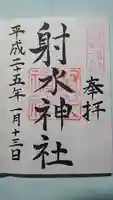 奉拝
射水神社
平成二十五年一月十三日